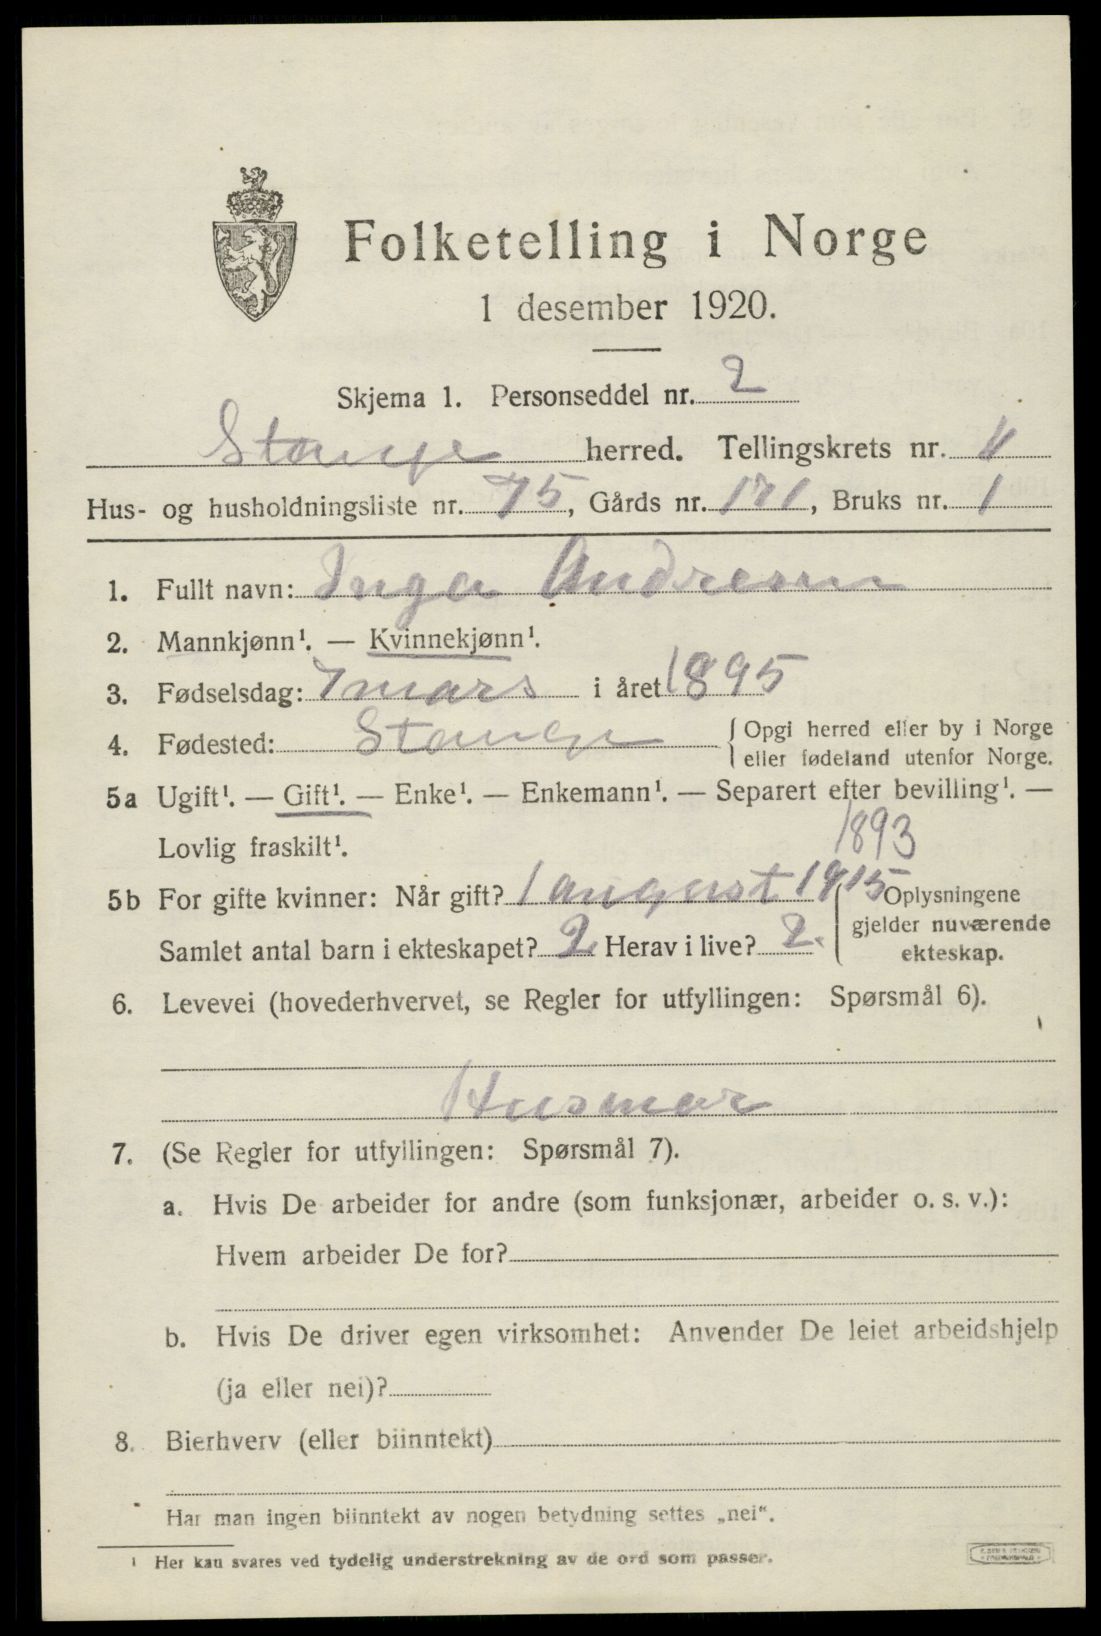 Folketelling i Norge
1 desember 1920.
Skjema 1. Personseddel nr. 2
Stange herred. Tellingskrets nr. 11
Hus- og husholdningsliste nr. 75, Gårds nr. 171, Bruks nr. 1
1. Fullt navn: Inga Andresen
2. Mannkjønn¹. — Kvinnekjønn¹.
3. Fødselsdag: 7 mars i året 1895
4. Fødested: Stange {Opgi herred eller by i Norge
eller fødeland utenfor Norge.
5a Ugift¹. — Gift¹. — Enke¹. — Enkemann¹. — Separert efter bevilling¹. —
Lovlig fraskilt¹.
1893
5b For gifte kvinner: Når gift? 1 august 1915 {Oplysningene
gjelder nuværende
Samlet antal barn i ekteskapet? 2 Herav i live? 2. ekteskap.
6. Levevei (hovederhvervet, se Regler for utfyllingen: Spørsmål 6).
Husmor
7. (Se Regler for utfyllingen: Spørsmål 7).
a. Hvis De arbeider for andre (som funksjonær, arbeider o. s. v.):
Hvem arbeider De for?
b. Hvis De driver egen virksomhet: Anvender De leiet arbeidshjelp
(ja eller nei)?
8. Bierhverv (eller biinntekt)
Har man ingen biinntekt av nogen betydning settes „nei“.
¹ Her kan svares ved tydelig understrekning av de ord som passer.